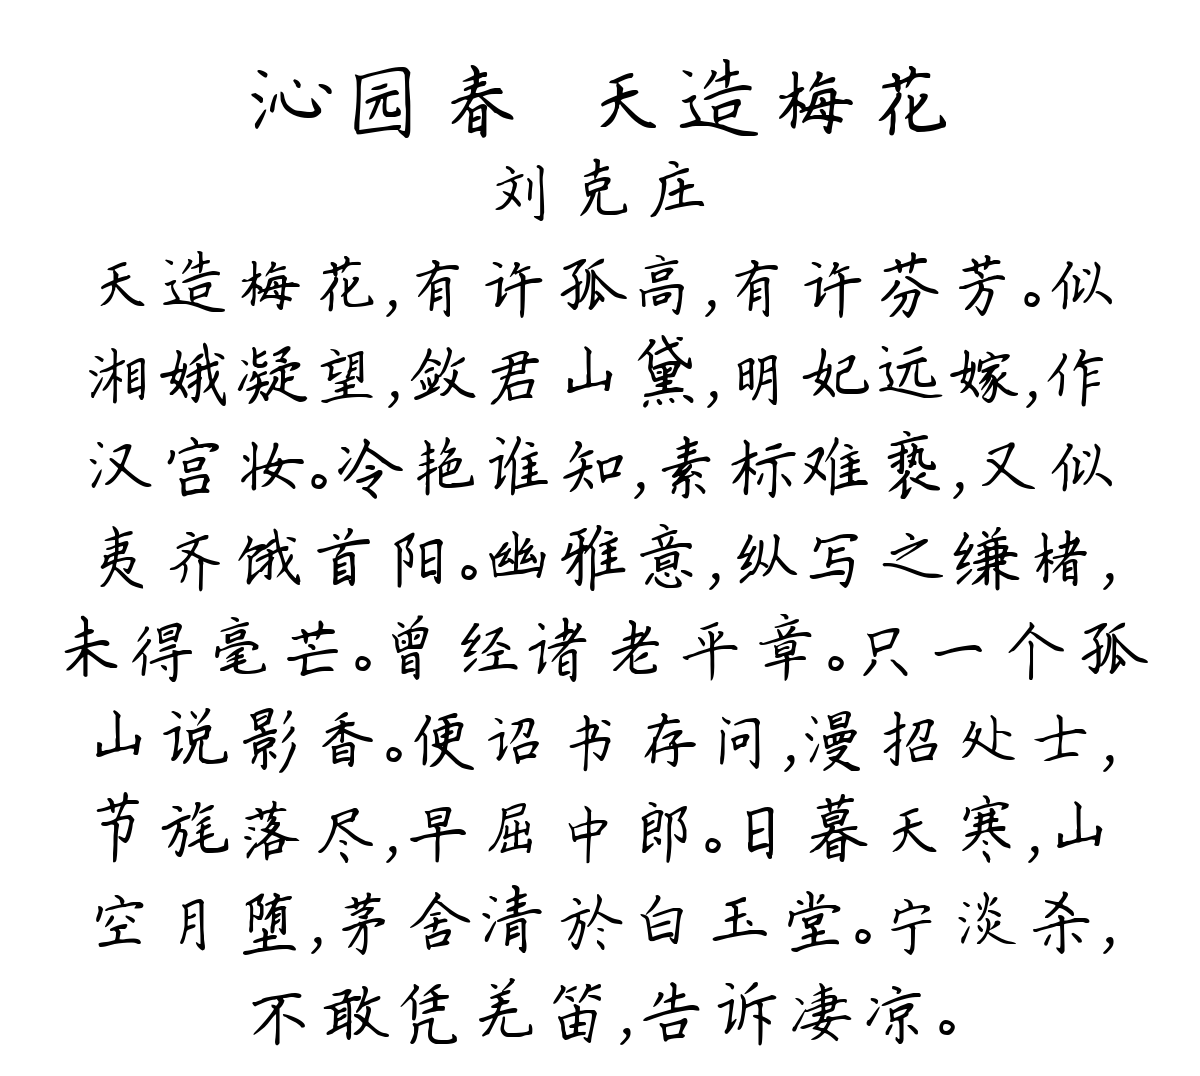 沁园春 天造梅花
刘克庄
天造梅花,有许孤高,有许芬芳。似
湘娥凝望,敛君山黛,明妃远嫁,作
汉宫妆。冷艳谁知,素标难亵,又似
夷齐饿首阳。幽雅意,纵写之缣楮,
未得毫芒。曾经诸老平章。只一个孤
山说影香。便诏书存问,漫招处士,
节旄落尽,早屈中郎。日暮天寒,山
空月堕,茅舍清於白玉堂。宁淡杀,
不敢凭羌笛,告诉凄凉。